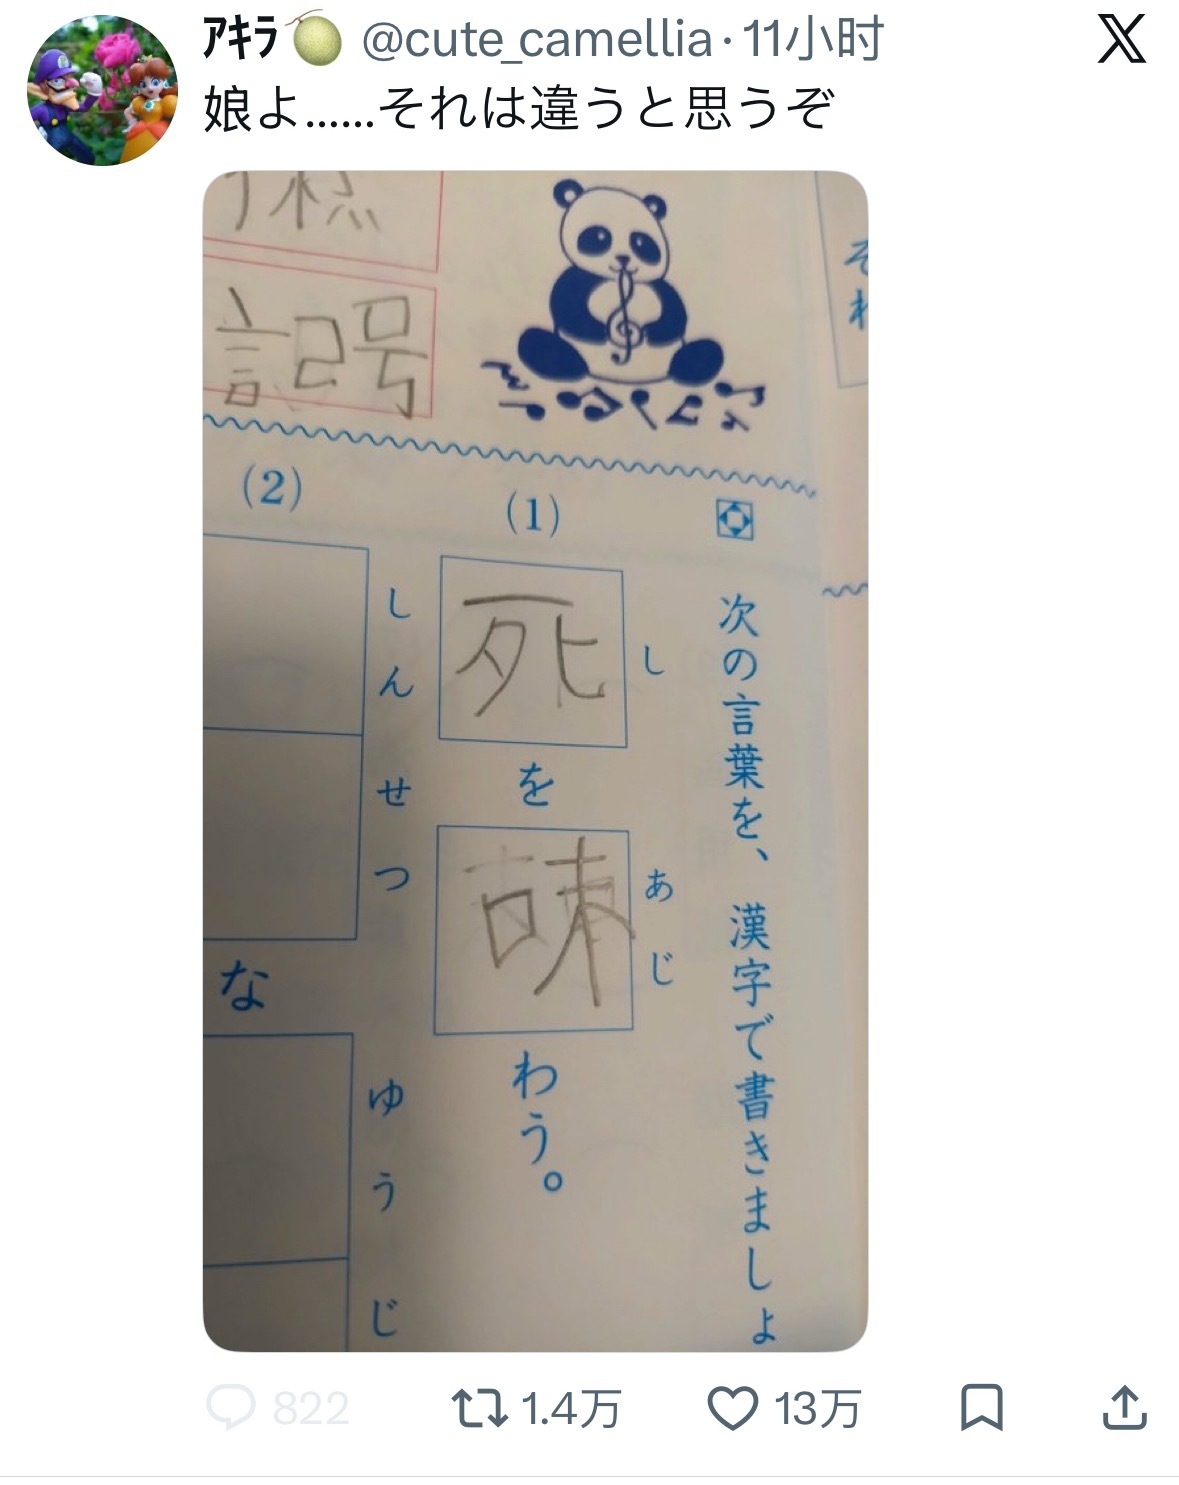 アキラ🍈 @cute_camellia · 11小时
娘よ……それは違うと思うぞ
記号
次の言葉を、漢字で書きましょ
(1)
し
死
を
あじ
味
わう。
(2)
しんせつ
な
ゆうじ
822
1.4万
13万